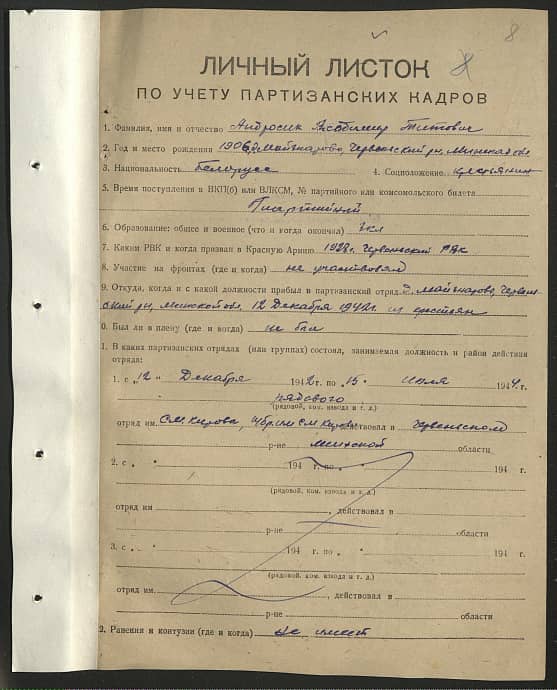 8
ЛИЧНЫЙ ЛИСТОК
ПО УЧЕТУ ПАРТИЗАНСКИХ КАДРОВ
1. Фамилия, имя и отчество Андросик Владимир Титович
2. Год и место рождения 1906, д. Майзнарово, Червенский рн, Минской обл
3. Национальность Белорусс 4. Соцположение крестьянин
5. Время поступления в ВКП(б) или ВЛКСМ, № партийного или комсомольского билета
6. Образование: общее и военное (что и когда окончил) 3кл
7. Каким РВК и когда призван в Красную Армию 1928г. Червенский РВК
8. Участие на фронтах (где и когда) не участвовал
9. Откуда, когда и с какой должности прибыл в партизанский отряд д. Майзнарово, Червен-
ский рн, Минской обл, 12 Декабря 1942г. из крестьян
0. Был ли в плену (где и когда) не был
1. В каких партизанских отрядах (или группах) состоял, занимаемая должность и район действия
отряда:
1. с „12" Декабря 1942г. по „15" июля 1944г.
рядового
(рядовой, ком. взвода и т. д.)
отряд им. С.М. Кирова, бр. им С.М. Кирова действовал в Червеньском
р-не Минской области
2. с „ " 194 г. по „ " 194 г.
(рядовой, ком. взвода и т. д.)
отряд им , действовал в
р-не области
3. с „ " 194 г. по „ " 194 г.
(рядовой, ком. взвода и т. д.)
отряд им. , действовал в
р-не области
2. Ранения и контузии (где и когда) не имеет